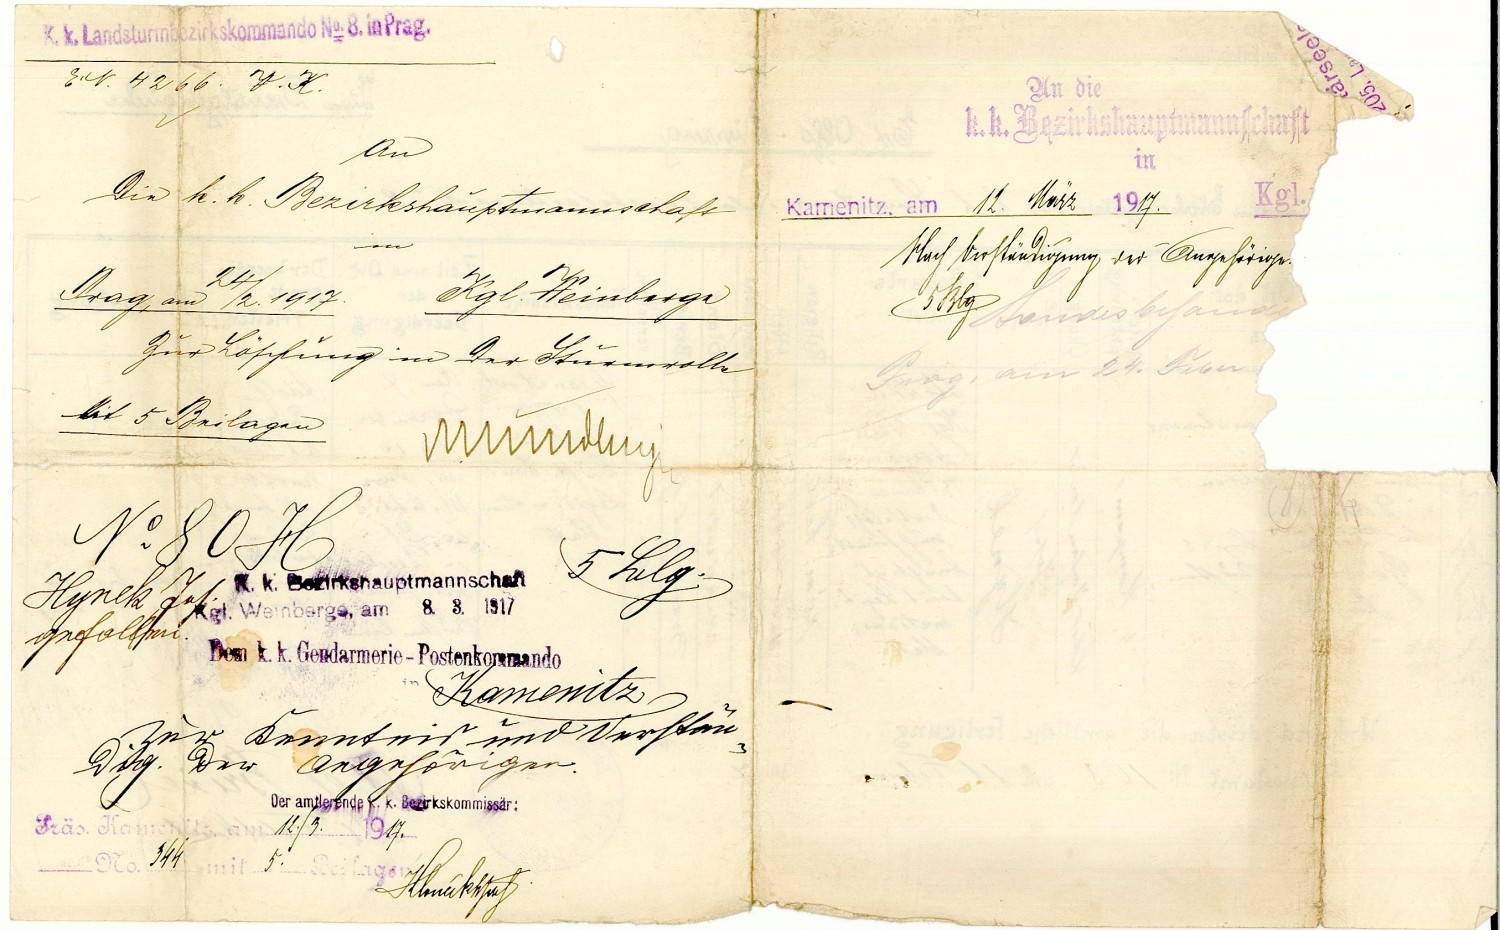 K. k. Landsturmbezirkskommando No. 8. in Prag.
E.N. 4266. V.K.
An
Die k. k. Bezirkshauptmannschaft
in
Prag, am 24/2. 1917. Kgl. Weinberge
Zur Löschung in der Sturmrolle
Mit 5 Beilagen
No. 80 H
Hynek Jos.
gefallen.
5 Blg.
K. k. Bezirkshauptmannschaft
Kgl. Weinberge, am 8. 3. 1917
Dem k. k. Gendarmerie-Postenkommando
in Kamenitz
zur Kenntnis und Verstän-
dig. der Angehörigen.
Der amtierende k. k. Bezirkskommissär:
Präs. Kamenitz, am 12./3. 1917.
No. 344 mit 5. Beilagen
An die
k. k. Bezirkshauptmannschaft
in
Kamenitz, am 12. März 1917. Kgl.
Nach Verständigung der Angehörige
5 Blg
Prag, am 24. Feber
205.